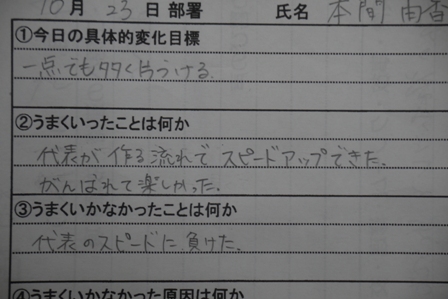 10月 23日 部署 氏名 本間 由香
①今日の具体的変化目標
一点でも多く片づける.
②うまくいったことは何か
代表が作る流れでスピードアップできた.
がんばれて楽しかった.
③うまくいかなかったことは何か
代表のスピードに負けた.
④うまくいかなかった原因は何か